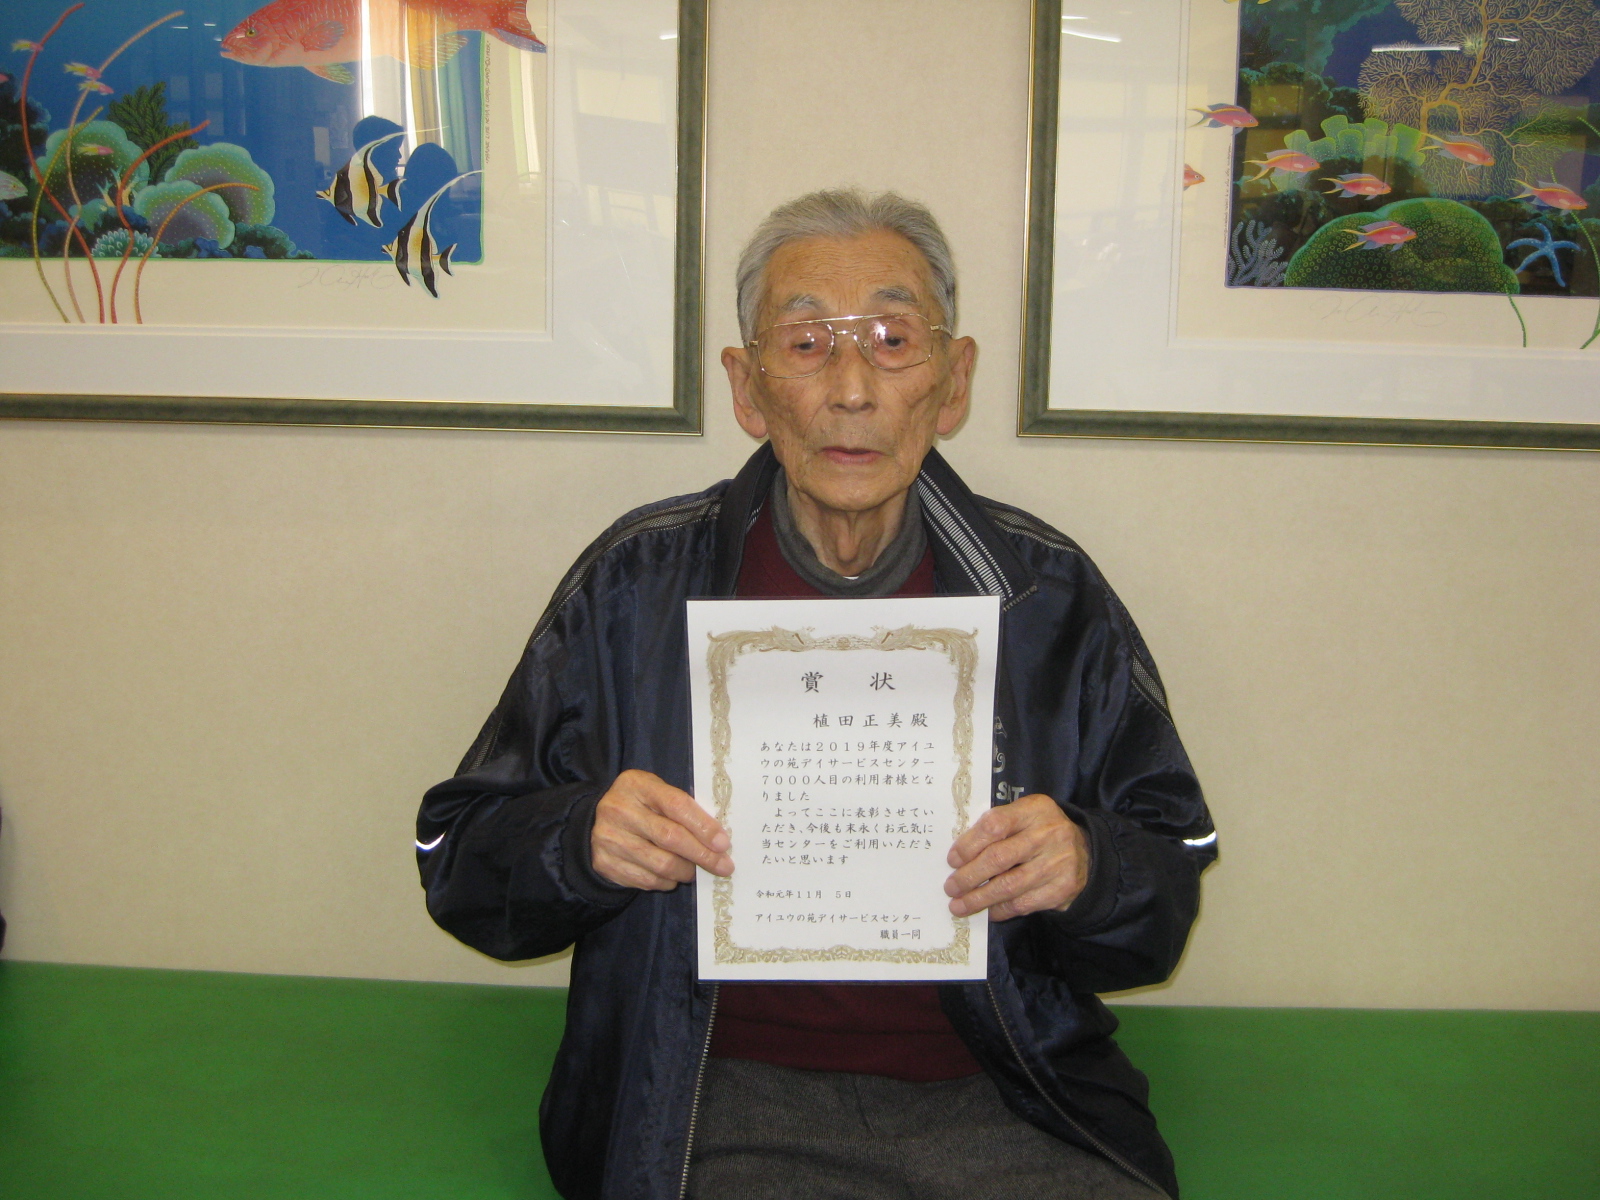 賞 状
植田正美殿
あなたは2019年度アイユ
ウの苑デイサービスセンター
7000人目の利用者様とな
りました
よってここに表彰させてい
ただき、今後も末永くお元気に
当センターをご利用いただき
たいと思います
令和元年11月 5日
アイユウの苑デイサービスセンター
職員一同